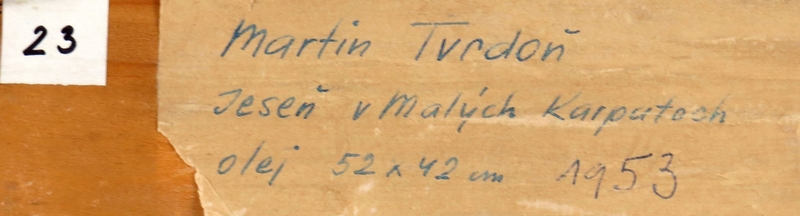 23
Martin Tvrdoň
Jeseň v Malých Karpatoch
olej 52 x 42 cm 1953